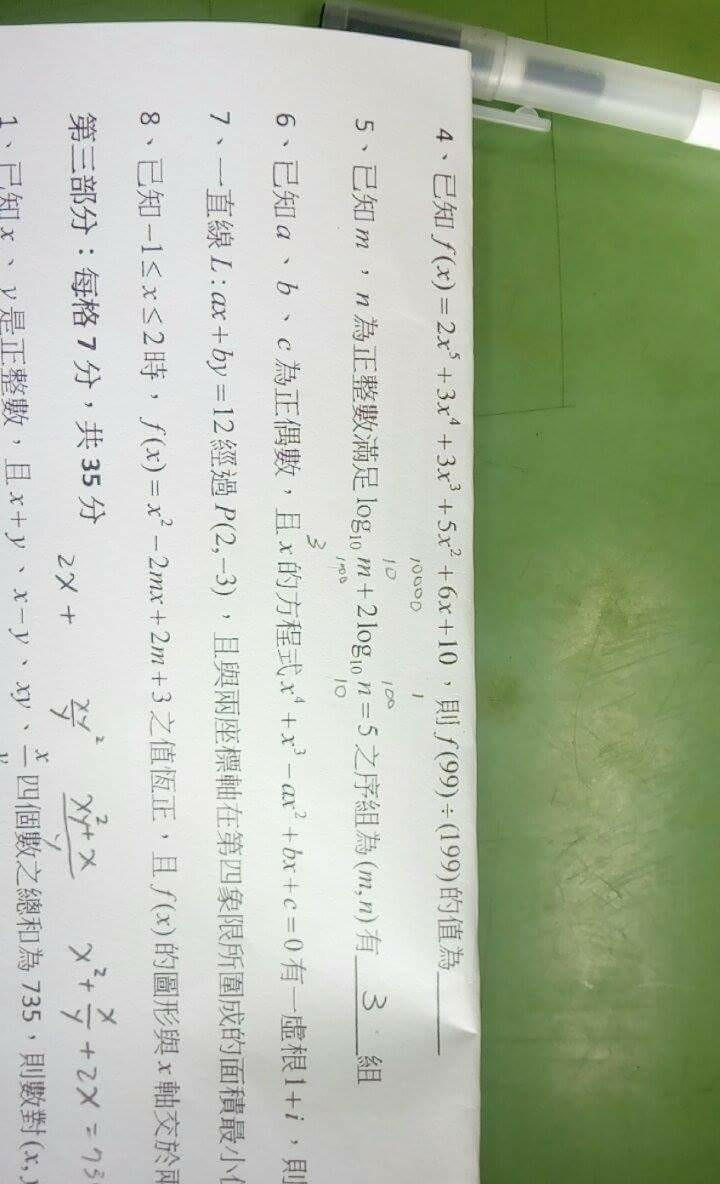 4、已知 f(x)=2x⁵+3x⁴+3x³+5x²+6x+10,則 f(99)÷(199)的值為______
10000 1
10 100
5、已知 m,n 為正整數滿足 log₁₀ m+2log₁₀ n=5 之序組為(m,n)有 3 組
1000 10
3
6、已知 a、b、c 為正偶數,且 x 的方程式 x⁴+x³−ax²+bx+c=0 有一虛根 1+i,則
7、一直線 L:ax+by=12 經過 P(2,−3),且與兩座標軸在第四象限所圍成的面積最小
8、已知 −1≤x≤2 時,f(x)=x²−2mx+2m+3 之值恆正,且 f(x)的圖形與 x 軸交於
第三部分:每格 7 分,共 35 分
2x+ xy/y² (xy²+x)/y x²+x/y+2x=73
1、已知 x、y 是正整數,且 x+y、x−y、xy、x/y 四個數之總和為 735,則數對(x,